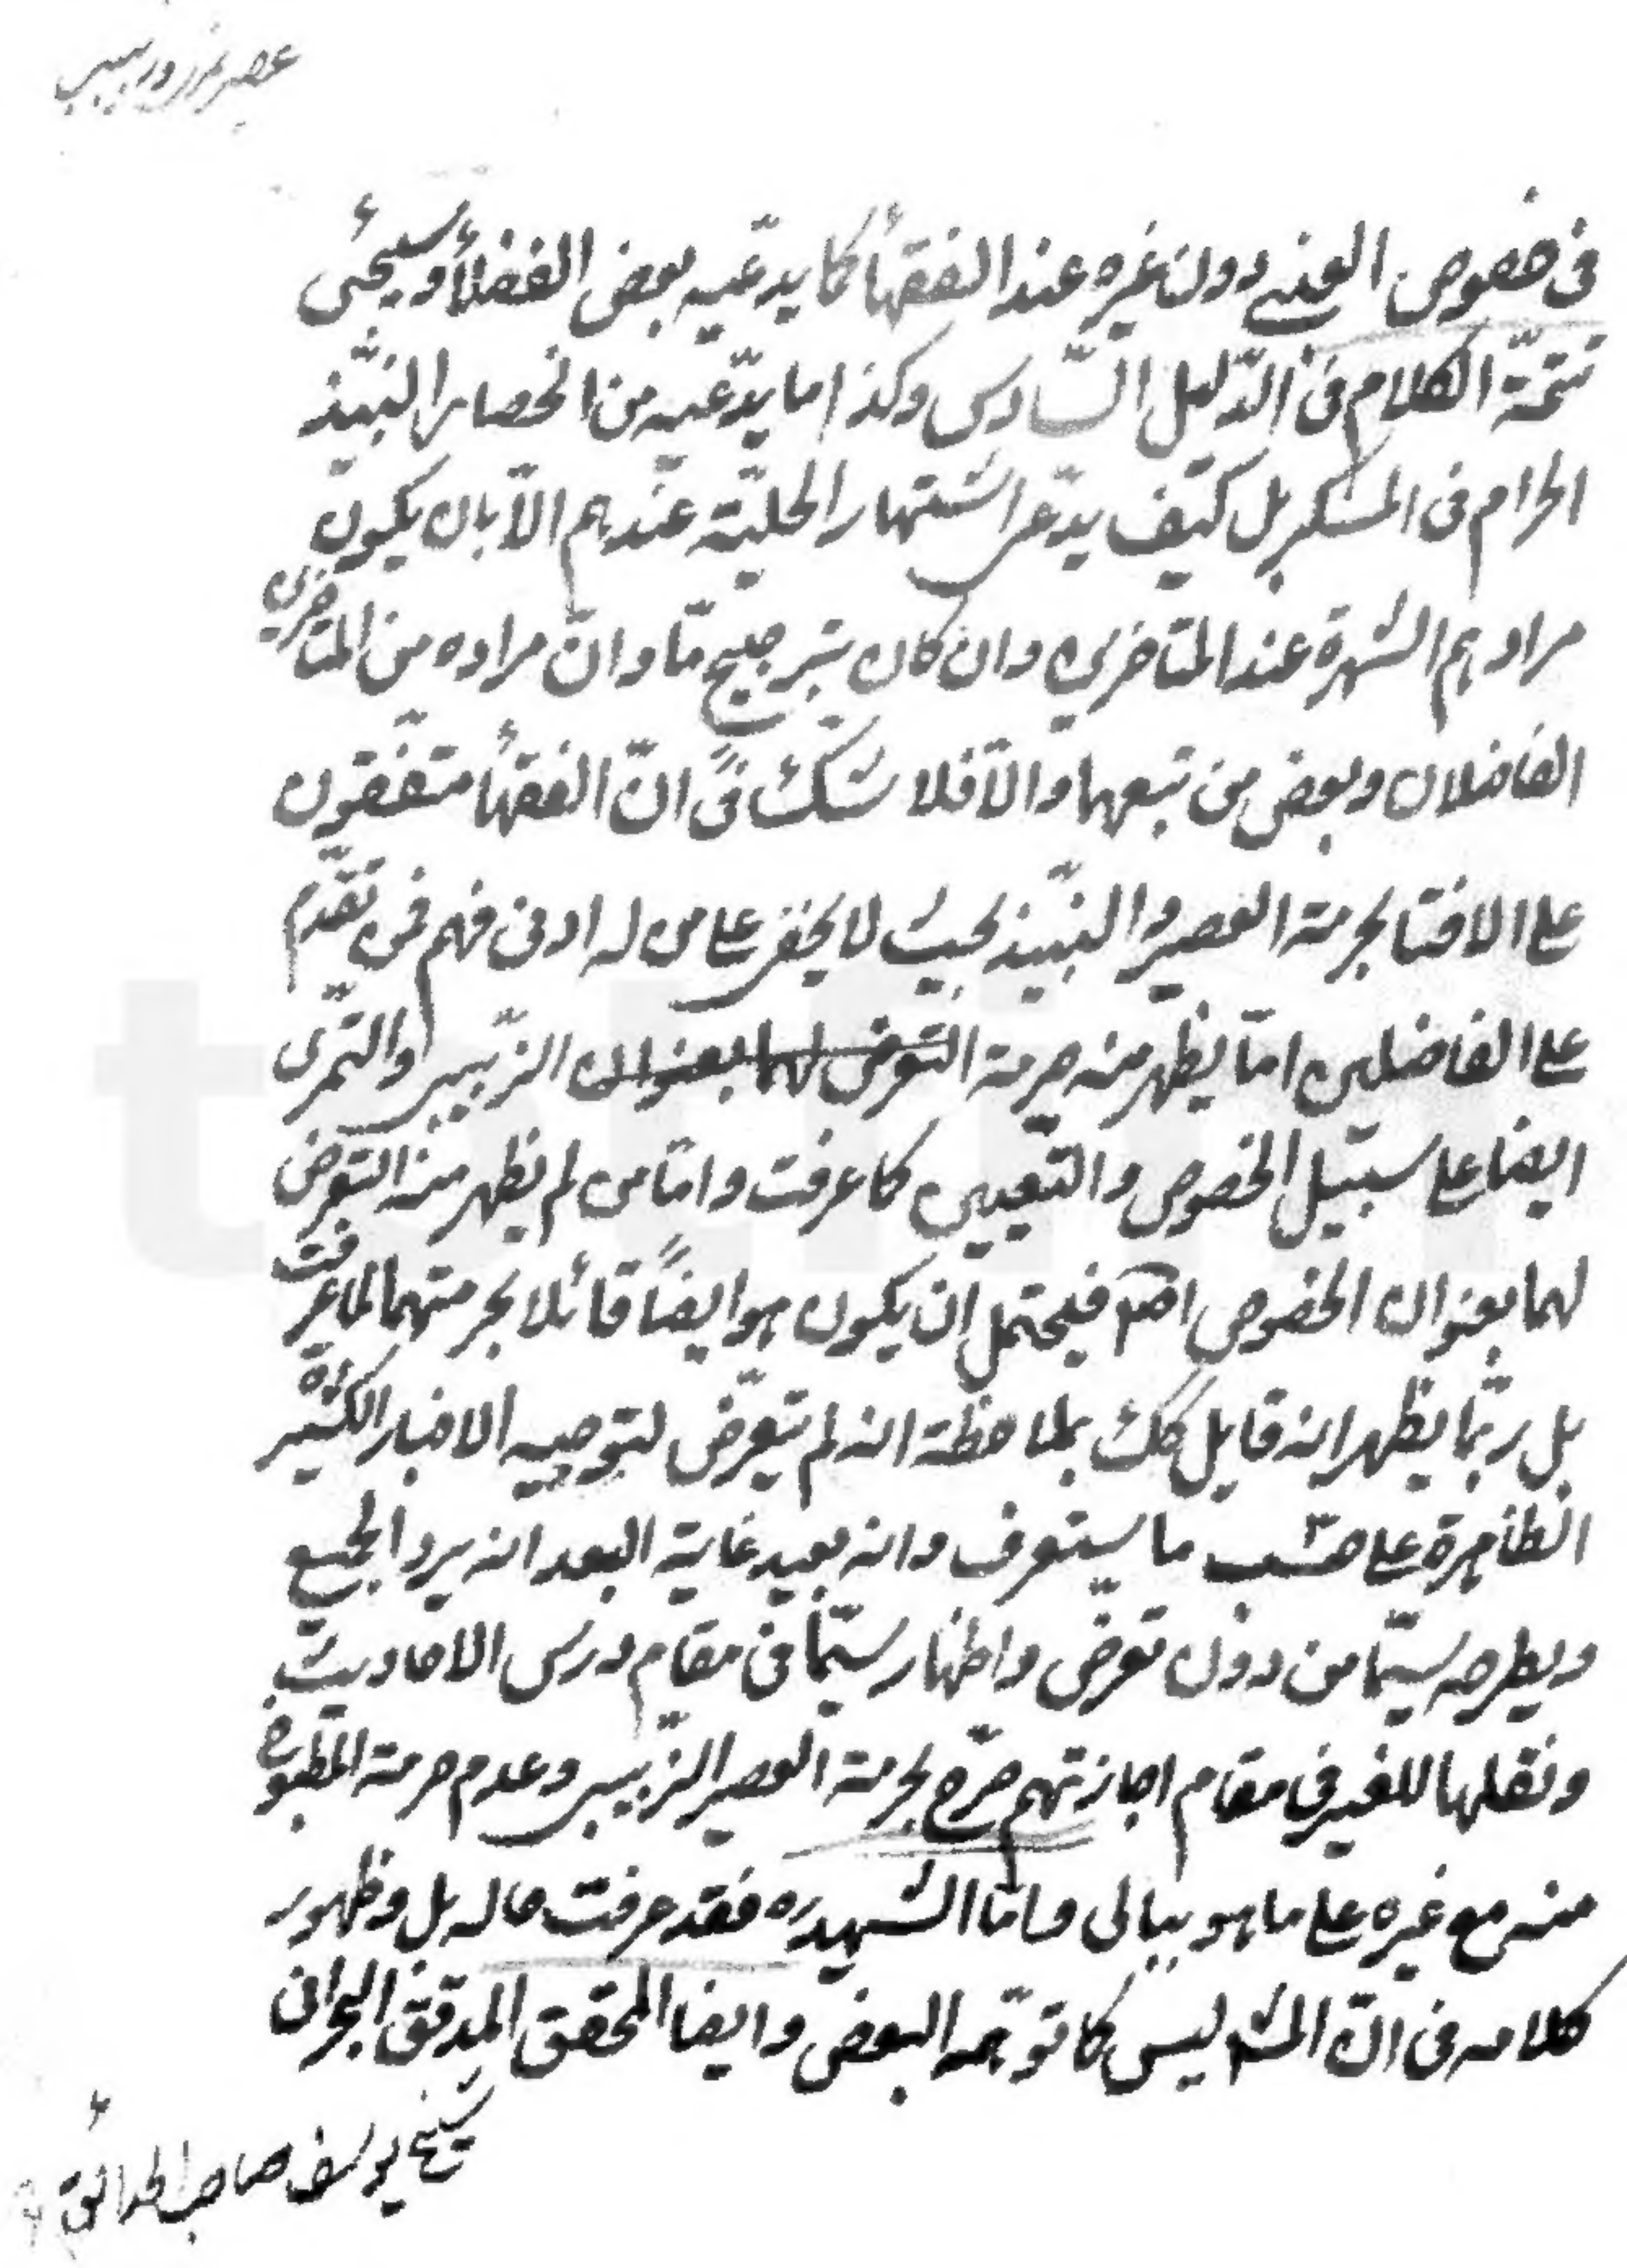 عصير تمر و زبيب
فى خصوص العنبى دون غيره عند الفقهأ كما يدعيه بعض الفضلأ و سيجئ
تتمة الكلام فى الدّليل السّادس وكذا ما يدّعيه من انحصار النبيذ
الحرام فى المسكر بل كيف يدعى اشتهار الحلية عندهم الّا بان يكون
مرادهم الشهرة عند المتاخرين وان كان بترجيح مّا وانّ مراده من المتاخرين
الفاضلان وبعض من تبعهما والّا فلا شك فى انّ الفقهأ متفقون
على الافتا بحرمة العصير والنبيذ بحيث لا يخفى على من له ادنى فهم فمن تقدّم
على الفاضلين امّا يظهر منه حرمة التعرض لهما بعنوان الزبيبى والتمرى
ايضا على سبيل الخصوص والتعيين كما عرفت وامّا من لم يظهر منه التعرض
لهما بعنوان الخصوص فيحتمل ان يكون هو ايضاً قائلا بحرمتهما لما عرفت
بل ربّما يظهر انه قايل كك بملاحظة انه لم يتعرّض لتوجيه الاخبار الكثيرة
الظاهرة على حسب ما ستعرف وانه بعيد غاية البعد انه يرد الجميع
ويطرحه سيّما من دون تعرض واظهار سيّما فى مقام درس الاحاديث
ونقلها للغير فى مقام اجازتهم صرّح بحرمة العصير الزبيبى وعدم حرمة المطبوخ
منه مع غيره على ما هو ببالى وامّا الشهيد ره فقد عرفت حاله بل وظهور
كلامه فى انّ المشه ليس كما توهّمه البعض وايضا المحقق المدقق البحرانى
شيخ يوسف صاحب الحدائق